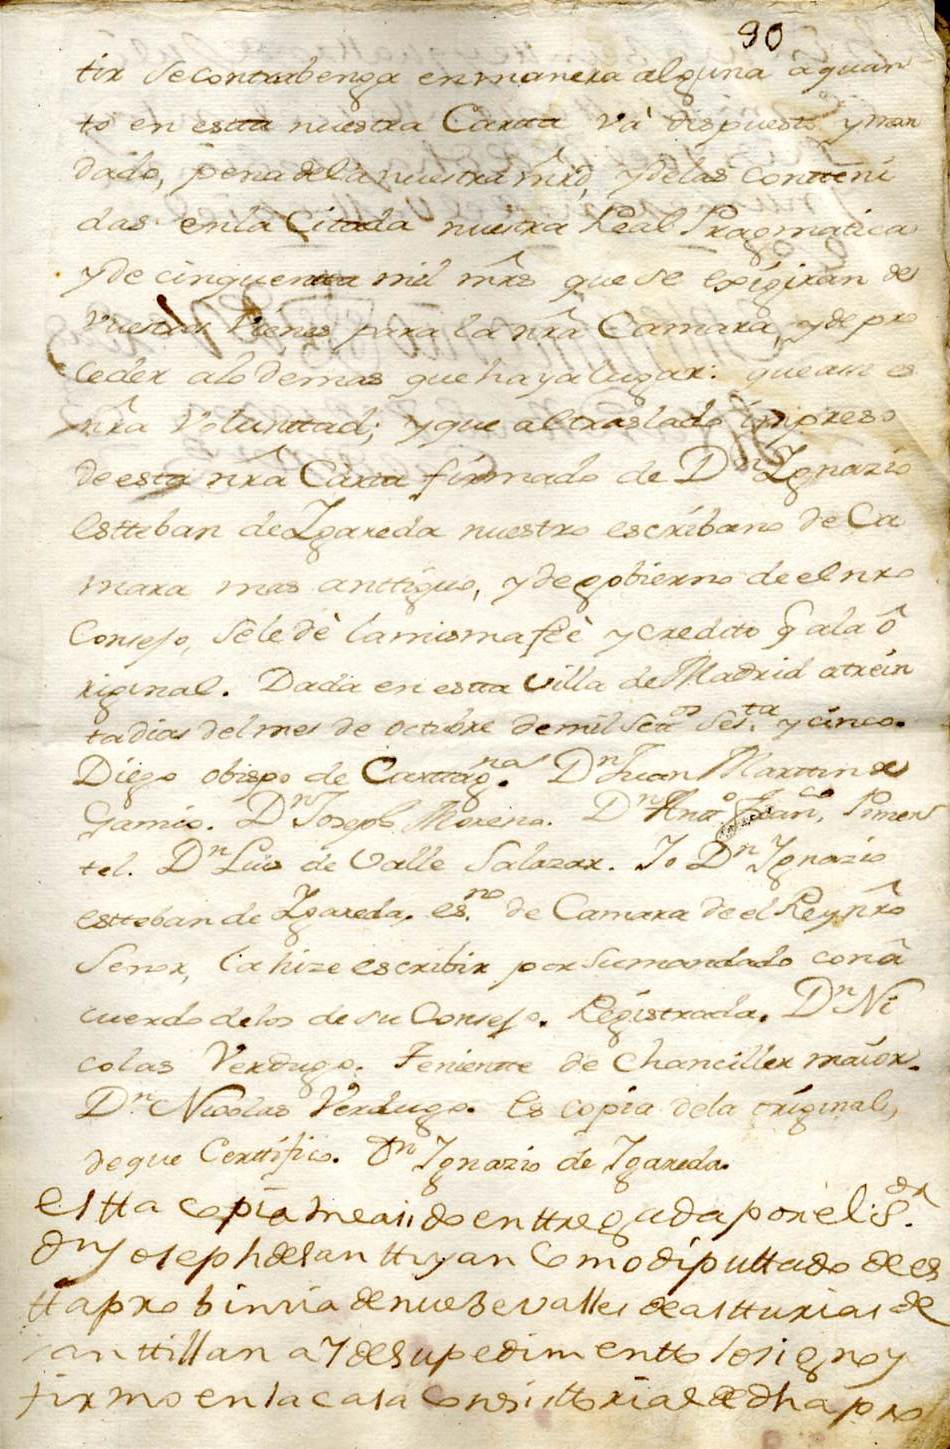 90
tir se contrabenga en manera alguna à quan
to en estta nuestra Cartta và dispuesto y man
dado, pena de la nuestra mrd, y de las conttení
das en la Citada nuestra Real Pragmatica
y de cinquentta mil mrs que se exigiran de
vuestros Vienes para la nrâ Camara, y de pro
ceder a lo demas que haya lugar: que asi es
nrâ Volunttad; y que al traslado impreso
de esta nrâ Cartta firmado de Dn Ygnazio
Estteban de Ygareda nuestro escribano de Ca
mara mas anttiguo, y de gobierno de el nro
Consejo, se le dè la misma feè y credito q̂ a la ô
riginal. Dada en estta Villa de Madrid a trein
ta dias del mes de octubre de mil setos Ses.ta y cinco.
Diego obispo de Carttag.na Dn Juan Marttin de
Gamio. Dn Joseph Moreno. Dn Antto Franco. Pimen
tel. Dn Luis de Valle Salazar. Yo Dn Ygnazio
estteban de Ygareda, es.no de Camara de el Rey nrô
Señor, la hize escribir por su mandado con â
cuerdo de los de su Consejo. Registrada. Dn Ni
colas Verdugo. Tenientte de Chanciller maior.
Dn Nicolas Verdugo. Es copia de la original,
de que Certtifico. Dn Ygnazio de Ygareda.
estta copia me a sido enttregada por el S.or
dn Joseph de santtiyan Como diputtado de es
tta probinzia de nuebe valles de astturias de
santtillana y de su pedimentto lo signo y
firmo en la casa Consisttorial de dha pro